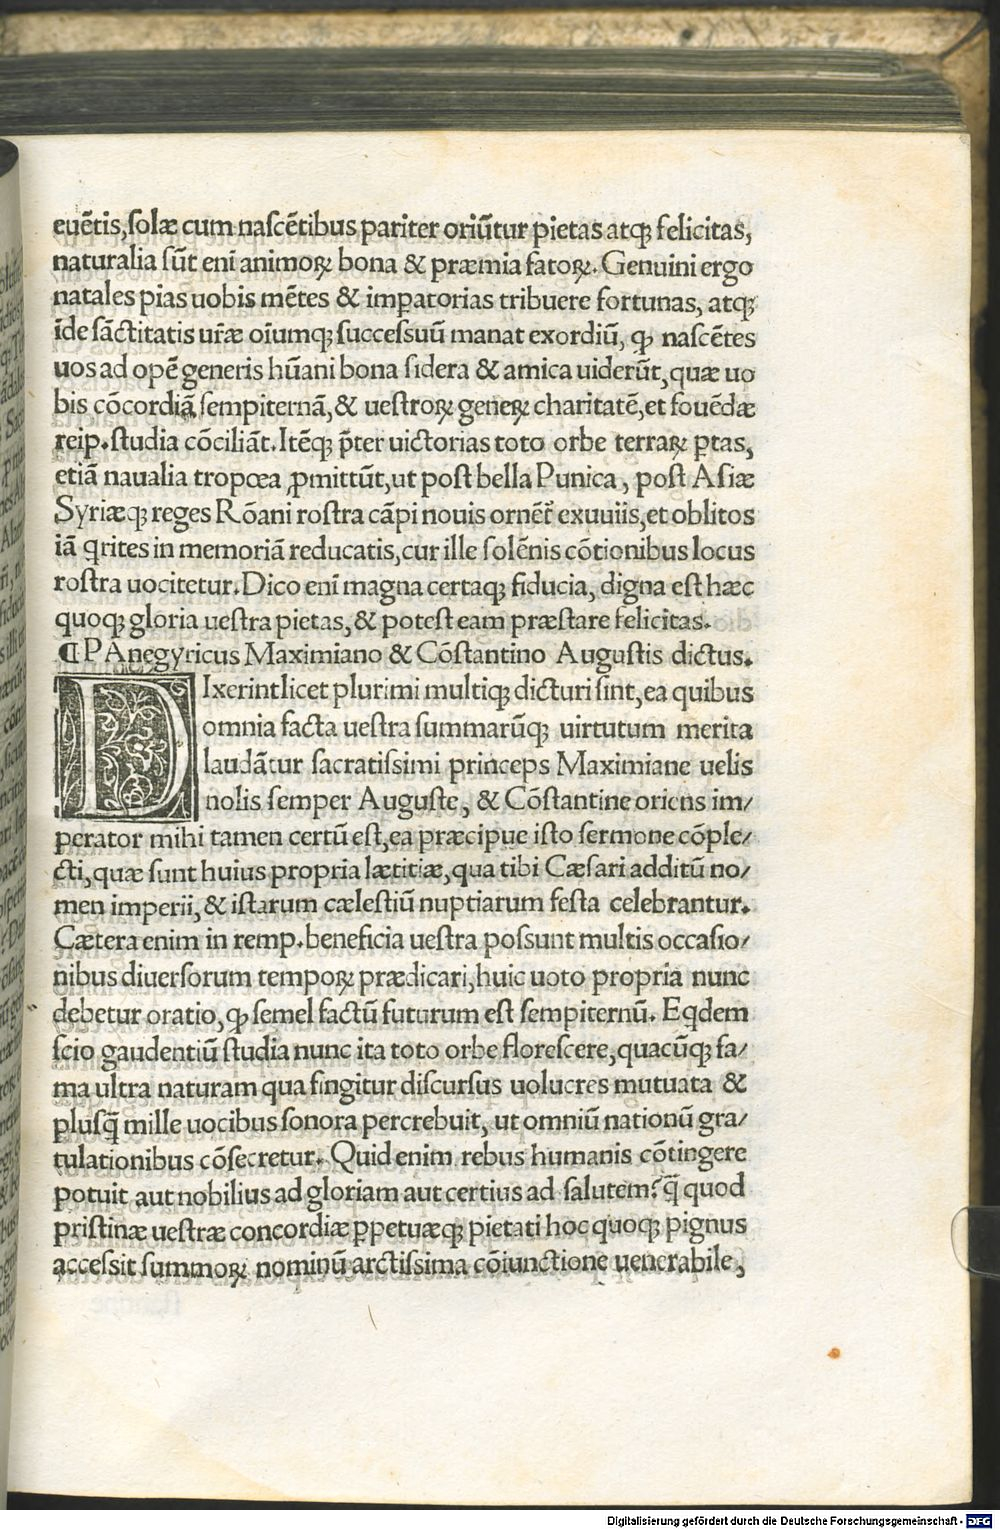 euẽtis,ſolæ cum naſcẽtibus pariter oriũtur pietas atqꝫ felicitas,
naturalia ſũt eni̅ animoꝝ bona & præmia fatoꝝ. Genuini ergo
natales pias uobis mẽtes & imꝑatorias tribuere fortunas, atqꝫ
i̅de ſãctitatis ur̃æ oi̅umqꝫ ſucceſſuũ manat exordiũ, ꝙ naſcẽtes
uos ad opẽ generis hũani bona ſidera & amica uiderũt,quæ uo
bis cõcordiã ſempiternã,& ueſtroꝝ geneꝝ charitatẽ,et fouẽdæ
reip.ſtudia cõciliãt.Itẽqꝫ p̃ter uictorias toto orbe terraꝝ ꝑtas,
etiã naualia tropœa ꝓmittũt,ut poſt bella Punica, poſt Aſiæ
Syriæqꝫ reges Rõani roſtra cãpi nouis ornẽt̃ exuuiis,et oblitos
iã qrites in memoriã reducatis,cur ille ſolẽnis cõtionibus locus
roſtra uocitetur.Dico eni̅ magna certaqꝫ fiducia, digna eſt hæc
quoqꝫ gloria ueſtra pietas,& poteſt eam præſtare felicitas.
¶PAnegyricus Maximiano & Cõſtantino Auguſtis dictus.
DIxerint licet plurimi multiqꝫ dicturi ſint,ea quibus
omnia facta ueſtra ſummarũqꝫ uirtutum merita
laudãtur ſacratiſſimi princeps Maximiane uelis
nolis ſemper Auguſte, & Cõſtantine oriens im/
perator mihi tamen certũ eſt,ea præcipue iſto ſermone cõple/
cti,quæ ſunt huius propria lætitiæ,qua tibi Cæſari additũ no/
men imperii,& iſtarum cæleſtiũ nuptiarum feſta celebrantur.
Cætera enim in remp.beneficia ueſtra poſſunt multis occaſio/
nibus diuerſorum tempoꝝ prædicari,huic uoto propria nunc
debetur oratio,ꝙ ſemel factũ futurum eſt ſempiternũ. Eqdem
ſcio gaudentiũ ſtudia nunc ita toto orbe floreſcere,quacũqꝫ fa/
ma ultra naturam qua fingitur diſcurſus uolucres mutuata &
pluſq̃ mille uocibus ſonora percrebuit, ut omniũ nationũ gra/
tulationibus cõſecretur. Quid enim rebus humanis cõtingere
potuit aut nobilius ad gloriam aut certius ad ſalutem?q̃ quod
priſtinæ ueſtræ concordiæ ꝑpetuæqꝫ pietati hoc quoqꝫ pignus
acceſſit ſummoꝝ nominũ arctiſſima cõiunctione uenerabile,
Digitalisierung gefördert durch die Deutsche Forschungsgemeinschaft - DFG